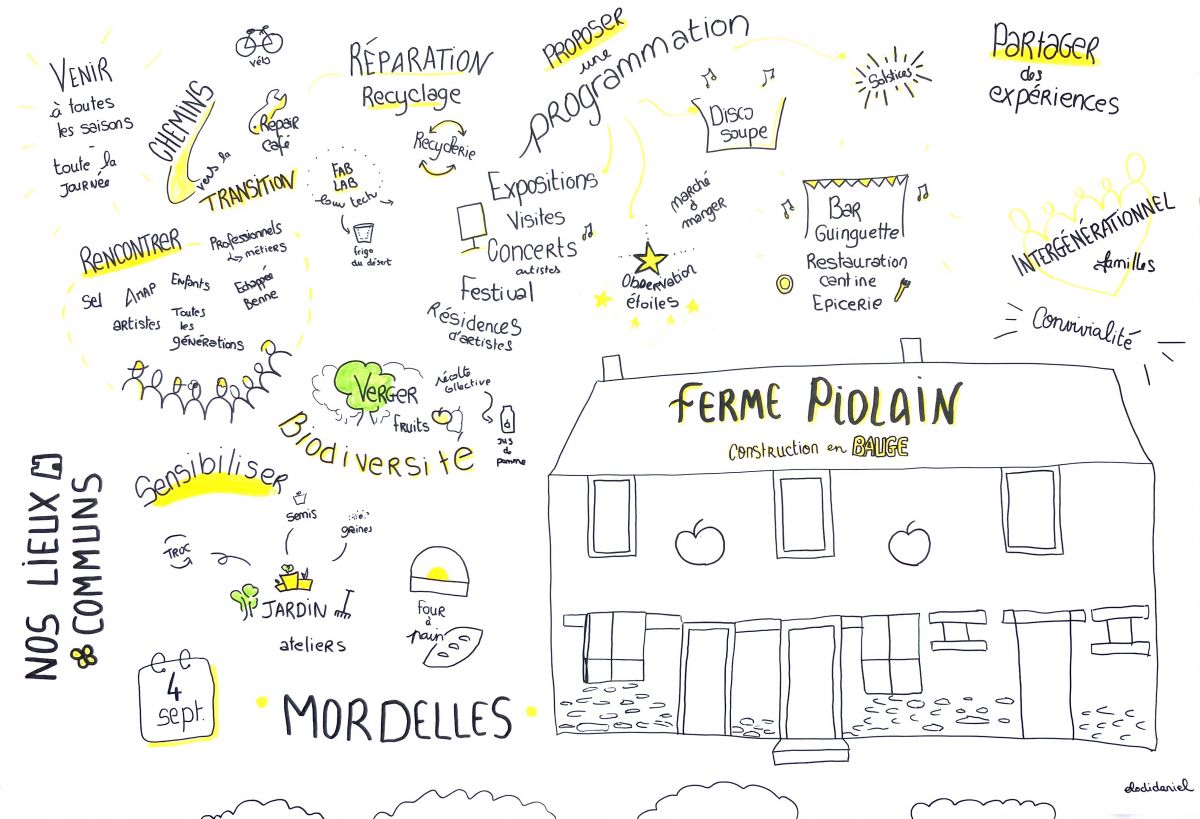 VENIR
à toutes
les saisons
-
toute la
JOURNÉE
CHEMINS
vers la
TRANSITION
vélo
Repair
café
RÉPARATION
Recyclage
Recyclerie
FAB
LAB
low tech
frigo
du désert
PROPOSER
une
programmation
Solstices
Disco
soupe
Expositions
Visites
Concerts
artistes
Festival
Résidences
d'artistes
Marché
à
manger
Observation
étoiles
Bar
Guinguette
Restauration
cantine
Epicerie
Partager
des
expériences
INTERGÉNÉRATIONNEL
familles
Convivialité
RENCONTRER
Professionnels
métiers
Sel
AMAP
Enfants
Echappée
Benne
artistes
Toutes
les
générations
VERGER
fruits
récolte
collective
Jus
de
pomme
Biodiversité
Sensibiliser
semis
graines
TROC
JARDIN
ateliers
four
à
pain
FERME PIOLAIN
Construction en BAUGE
NOS LIEUX
COMMUNS
4
sept.
MORDELLES
elodidaniel